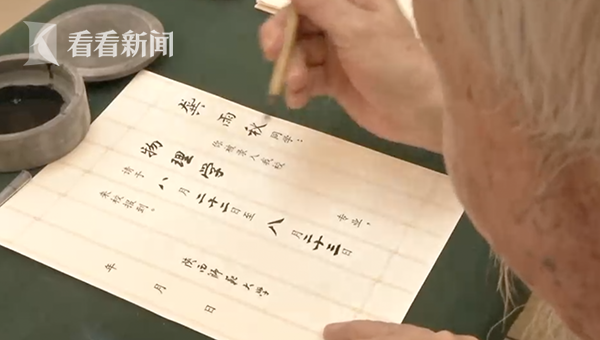 看看新闻
龚雨秋同学:
你被录入我校
物理学专业,
请于八月二十二日至八月二十三日
来校报到。
陕西师范大学
年 月 日